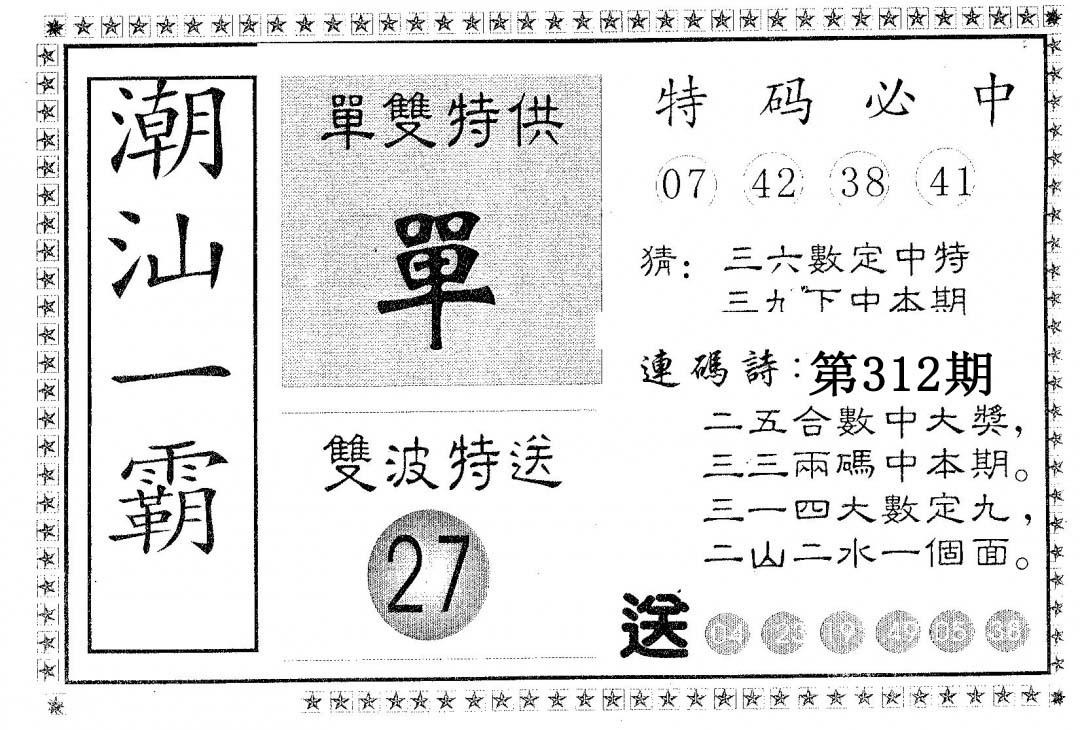 潮汕一霸
單雙特供
單
雙波特送
27
特码必中
07 42 38 41
猜：三六數定中特
三九下中本期
連碼詩：第312期
二五合數中大獎，
三三兩碼中本期。
三一四大數定九，
二山二水一個面。
送 04 23 19 49 05 38